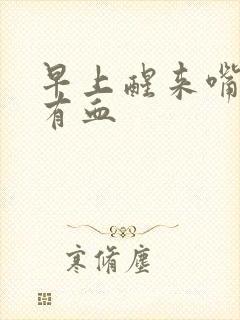 早上醒来嘴
有血
寒脩塵